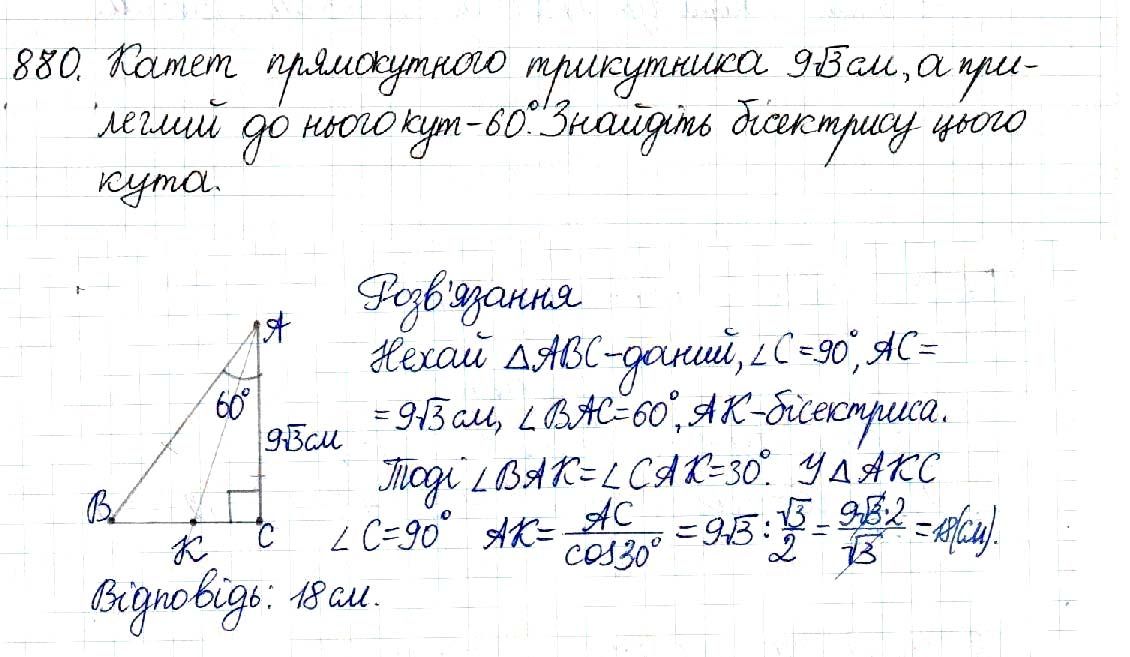 880. Катет прямокутного трикутника 9√3 см, а при-
леглий до нього кут - 60°. Знайдіть бісектрису цього
кута.
Розв'язання
Нехай △ABC - даний, ∠C = 90°, AC =
= 9√3 см, ∠BAC = 60°, AK - бісектриса.
Тоді ∠BAK = ∠CAK = 30°. У △AKC
∠C = 90° AK = AC/cos30° = 9√3 : √3/2 = 9√3·2/√3 = 18(см).
A
60°
9√3 см
B
K
C
Відповідь: 18 см.